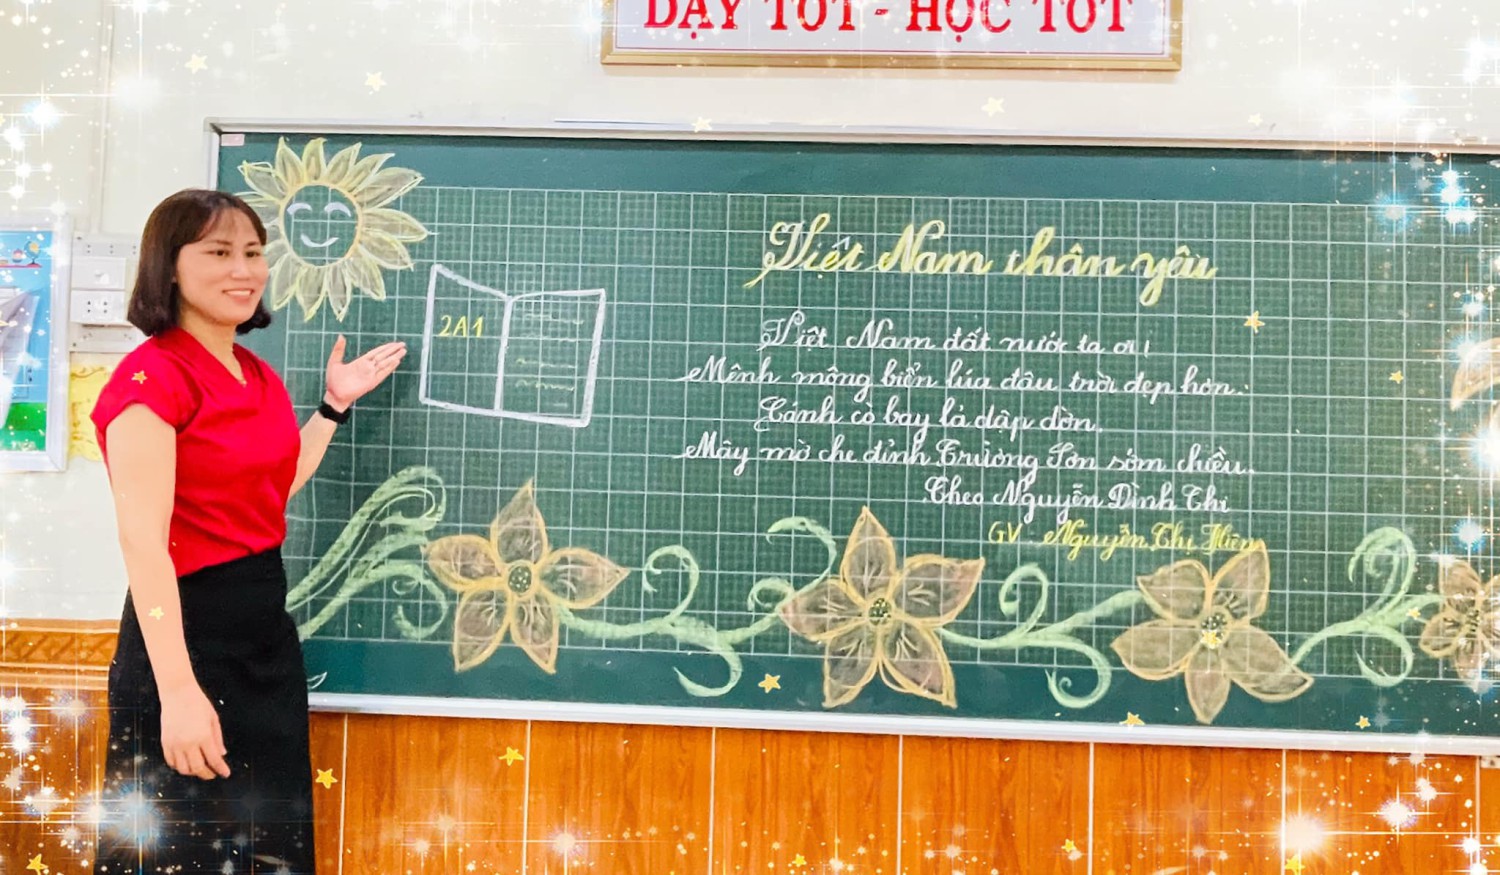 DẠY TỐT - HỌC TỐT
Việt Nam thân yêu
2A1
Việt Nam đất nước ta ơi!
Mênh mông biển lúa đâu trời đẹp hơn.
Cánh cò bay lả dập dờn.
Mây mờ che đỉnh Trường Sơn sớm chiều.
Theo Nguyễn Đình Thi
GV: Nguyễn Thị Hiên